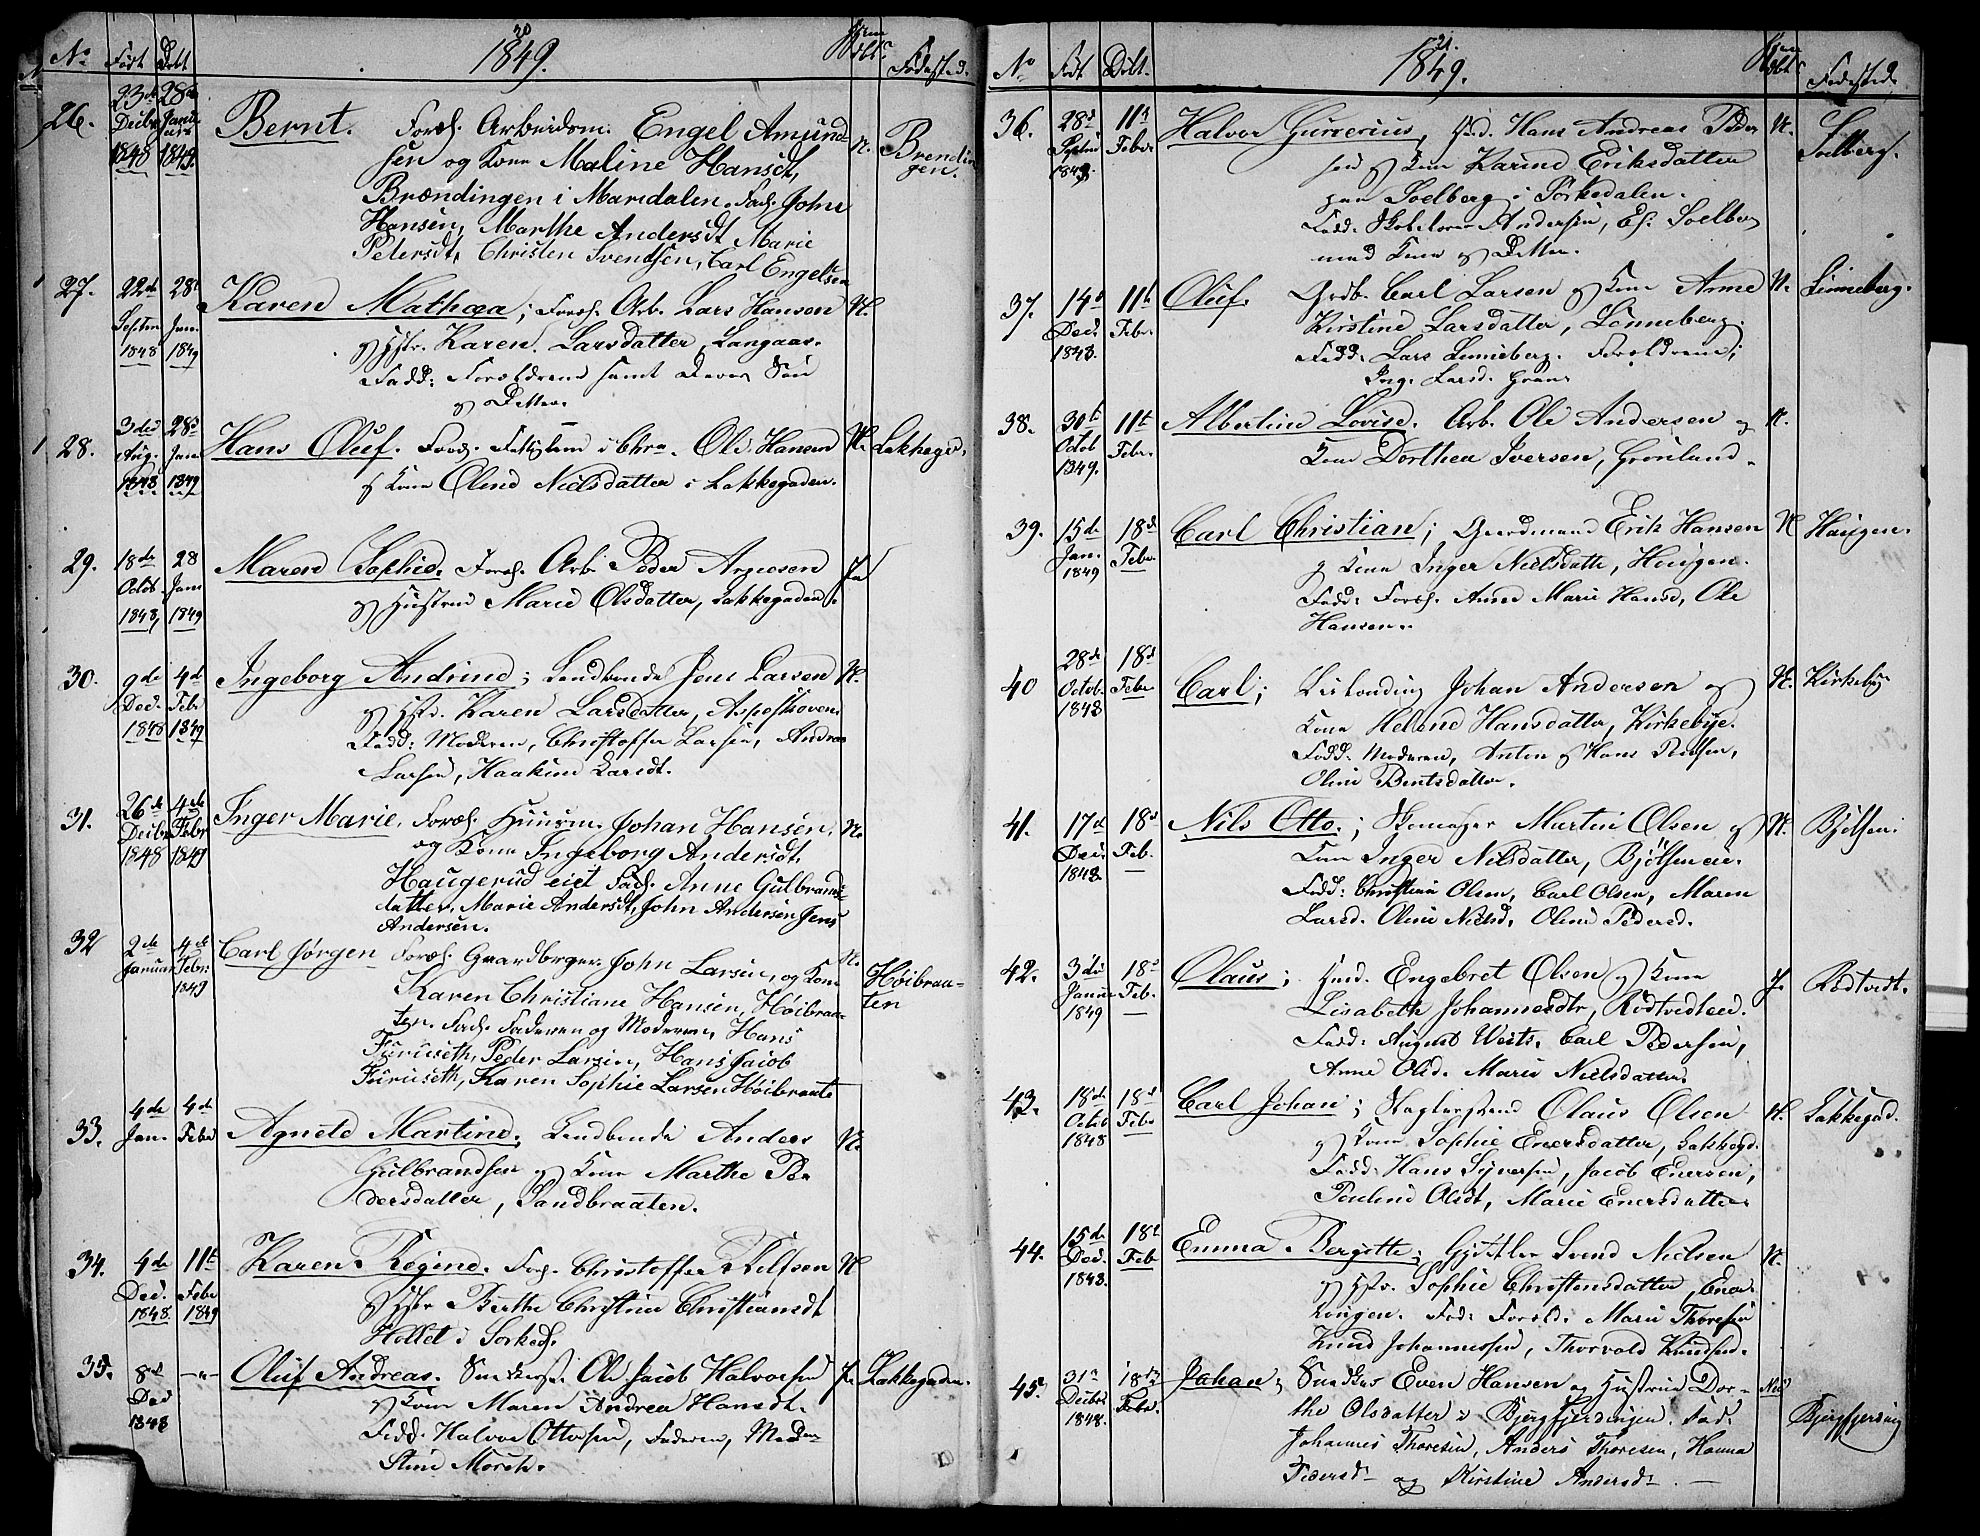 20
No Født Døbt 1849. Hjem dbt. Fødested.
26. 23de Decbr 1848 28de Januar 1849. Bernt. Foræl. Arbeidsm. Engel Amund-
sen og Kone Maline Hansdt, N. Brendin
Brændingen i Maridalen. Fad. John gen.
Hansen, Marthe Andersdt, Marie
Petersdt, Christen Svendsen, Carl Engelsen
27. 22de Septbr 1848 28d Jan. 1849 Karen Mathea; Foræl. Arb. Lars Hansen N.
og Hstr. Karen Larsdatter, Langaas.
Fadd: Forældrene samt deres Søn
og Datter.
28. 3die Aug. 1848 28d Jan 1849 Hans Oluf. Foræl. i Chra. Ole Hansen N. Lakkegd.
og Kone Oline Nielsdatter i Lakkegaden.
29. 18de Octob 1848, 28 Jan 1849 Maren Sophie. Foræl. Arb. Peder Arnesen Ja
og Hustru Marie Olsdatter, Lakkegaden.
30. 9de Dec. 1848 4de Feb 1849 Ingeborg Andrine; Jens Larsen N.
og Hstr. Karen Larsdatter, Aspeskoven
Fadd: Moderen, Christoffer Larsen, Andrea
Larsen, Haakine Larsdt.
31. 26de Decbr 1848 4de Febr 1849 Inger Marie. Foræl. Huusm. Johan Hansen, N.
og Kone Ingeborg Andersdt.
Haugerud eiet Fad. Anne Gulbrands-
datter, Marie Andersdt, John Andersen, Jens
Andersen.
32 2de Januar 4de Febr: 1849 Carl Jørgen Foræl. Gaardbrger. John Larsen, og Kone N. Høibraa-
Karen Christiane Hansen, Høibraa- ten
ten. Fad. Faderen og Moderen, Hans
Furuseth, Peder Larsen, Hans Jacob
Furuseth, Karen Sophie Larsen Høibraate
33. 4de Jan. 4de Febr Agnete Martine. Anders N.
Gulbrandsen og Kone Marthe Pe-
dersdatter, Sandbraaten.
34. 4de Dec. 1848. 11te Febr 1849 Karen Regine. For. Christoffer N.
og Hstr Berthe Christine Christiansdt
Hollet i Sørked.
35. 8de Dec 1848 -"- Oluf Andreas. Ole Jacob Halvorsen J. Lakkegaden.
og Kone Maren Andrea Hansdt.
Fadd: Halvor Ottersen, Faderen,
Stine Morch.
21.
No Født Døbt. 1849. Hjem dbt. Fødested.
36. 28d 11te Febr. Halvor Hans Andreas Peder N. Soelberg.
sen og Kone Karine Eriksdatter
paa Soelberg i Sørkedalen.
Fadd: Andersen, Soelberg
med Kone og Datter.
37. 14d Dec. 1848. 11te Febr. Oluf. Grdb. Carl Larsen og Kone Anne N. Linneberg.
Kirstine Larsdatter, Linneberg.
Fadd: Lars Linneberg. Forældrene;
Ing. Larsd.
38. 30te Octob 1849. 11te Febr. Albertine Lovise. Arb. Ole Andersen og N.
Kone Dorthea Iversen, Grønland.
39. 15de Jan. 1849 18de Febr. Carl Christian; Gaardmand Erik Hansen N Haugen.
og Kone Inger Nielsdatter, Haugen.
Fadd: Foræl. Anne Marie Hansd, Ole
Hansen.
40 28de Octob. 1848 18d Febr Carl; Johan Andersen og N. Kirkeby
Kone Helene Hansdatter, Kirkebye.
Fadd: Moderen, Anton og Hans
Oline Berntsdatter.
41. 17d Dec. 1848. 18d Feb. Nils Otto.; Skomager Martin Olsen og N. Bjølsen.
Kone Inger Nilsdatter, Bjølseneie.
Fadd: Christine Olsen, Carl Olsen, Maren
Larsd. Oline Nielsd, Oline Pedersd.
42. 3die Januar 1849 18d Feb. Olaus; Husd. Engebret Olsen og Kone J. Rødtvedt.
Lisabeth Johannesdtr, Rødtvedteie.
Fadd: August Carl Pedersen,
Anne Olsd. Marie Nielsdatter.
43. 18de Octob 1848 18d Febr Carl Johan; Olaus Olsen N. Lakkegad.
og Kone Sophie Eversdatter, Lakkegd.
Fadd: Hans Syversen, Jacob Eversen,
Pauline Olsdt, Marie Eversdatter.
44. 15de Dec. 1848. 18d Feb Emma Bergitte; Svend Nielsen N.
og Hstr. Sophie Christensdatter,
Fad: Foræld. Marie Thoresen
Knud Johannessen, Thorvald Knudsen.
45. 31te Decbr 1848. 18de Febr. Johan; Even Hansen og Hustrue Dor- Nei
the Olsdatter i Bjergfjerdingen. Fad. Bjergfjerding
Johannes Thoresen, Anders Thoresen, Hanna
Pedersdt og Kirstine Andersdt.